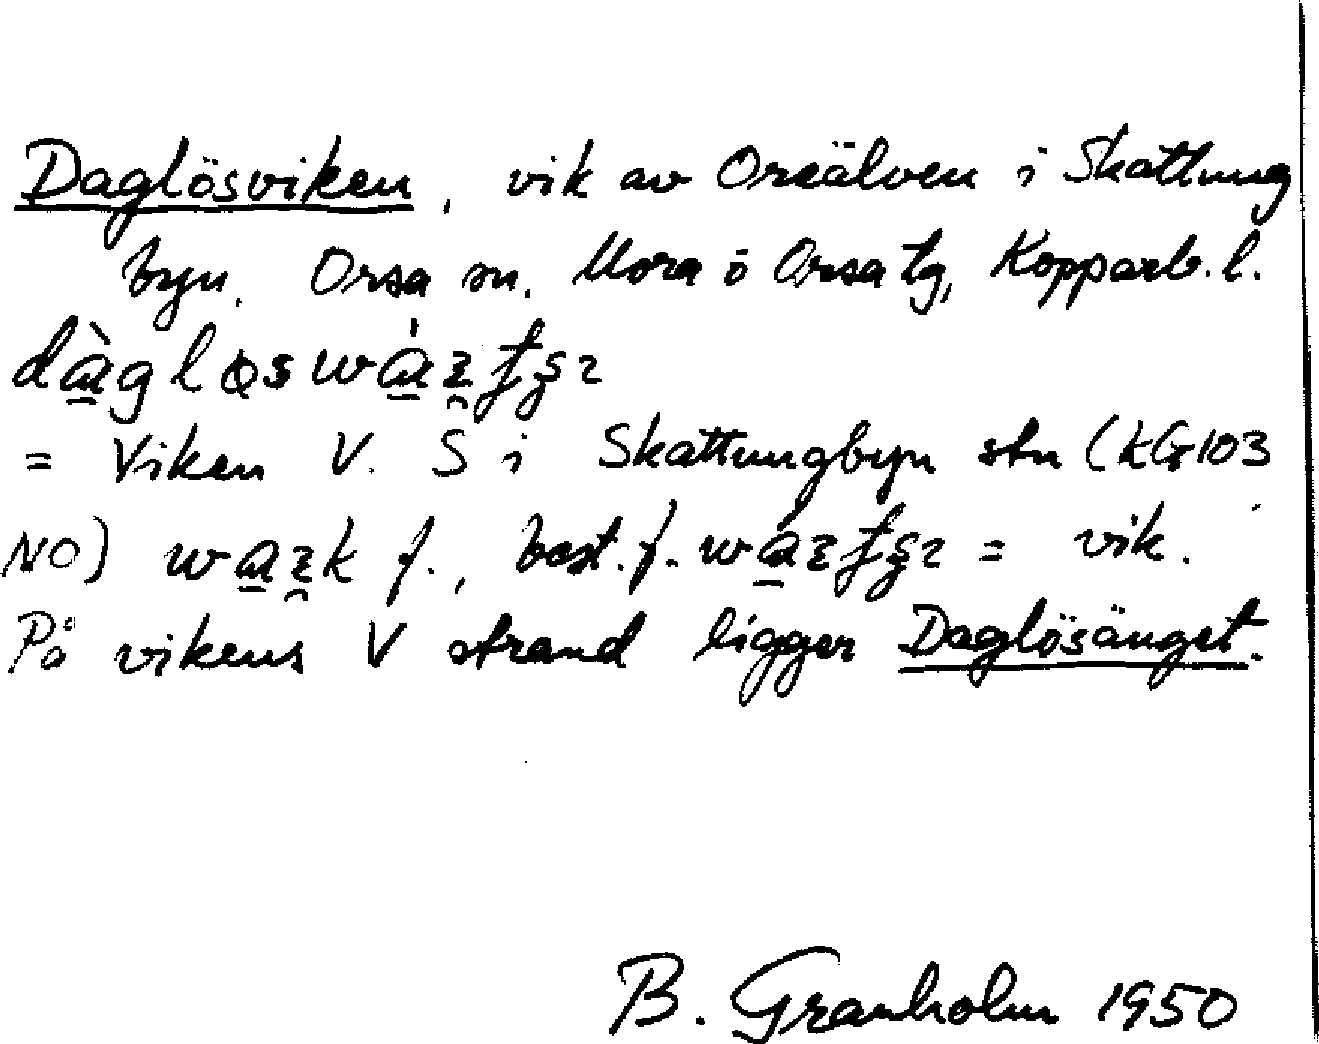 Daglösviken, vik av Oreälven i Skattung
byn. Orsa sn. Mora o Orsa tg, Kopparb. l.
= Viken V. S i Skattungbyn stn (KG103
NO) f., best. f. = vik.
På vikens V strand ligger Daglösänget.
B. Granholm 1950